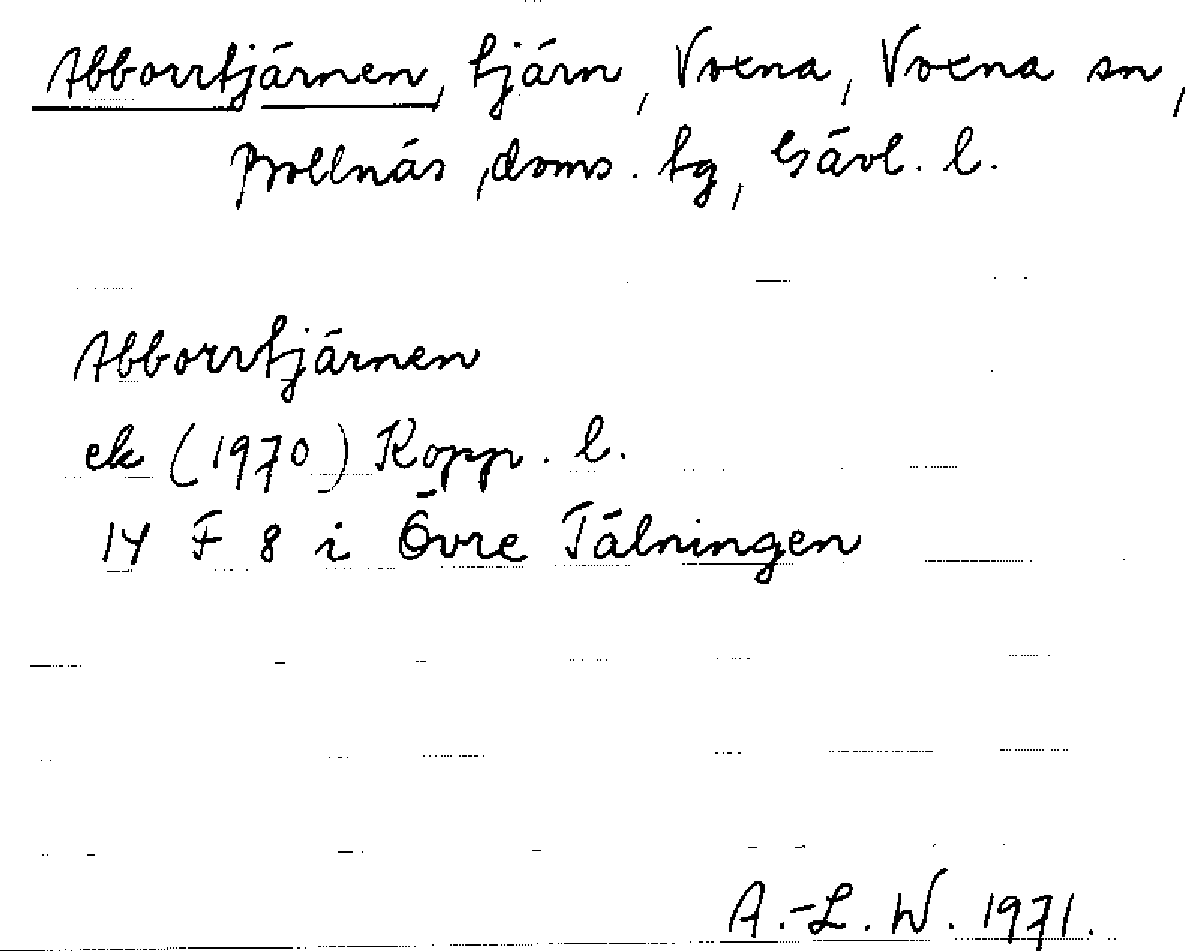 Abborrtjärnen, tjärn, Voxna, Voxna sn,
Bollnäs doms. tg, Gävl. l.
Abborrtjärnen
ek (1970) Kopp. l.
14 F 8 i Övre Tälningen
A.-L. W. 1971.